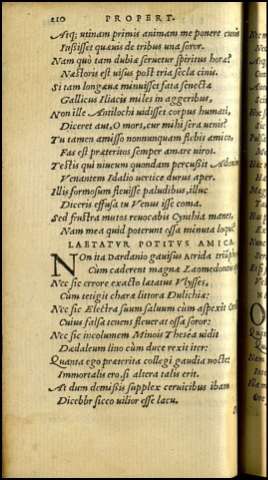 210 PROPERT.
Atq; utinam primis animam me ponere cunis
Iußisset quæuis de tribus una soror.
Nam quò tam dubiæ seruetur spiritus horæ?
Nestoris est uisus post tria secla cinis.
Si tam longæuæ minuisset fata senectæ
Gallicus Iliacis miles in aggeribus,
Non ille Antilochi uidisset corpus humari,
Diceret aut, O mors, cur mihi sera uenis?
Tu tamen amisso nonnunquam flebis amico,
Fas est præteritos semper amare uiros.
Testis qui niueum quondam percußit Adonin
Venantem Idalio uertice durus aper.
Illis formosum fleuisse paludibus, illuc
Diceris effusa tu Venus isse coma.
Sed frustra mutos reuocabis Cynthia manes,
Nam mea quid poterunt ossa minuta loqui?
LAETATVR POTITVS AMICA.
Non ita Dardanio gauisus Atrida triūpho
Cum caderent magnæ Laomedontis
Nec sic errore exacto lætatus Vlysses,
Cum tetigit chara littora Dulichiæ:
Nec sic Electra suum saluum cùm aspexit
Cuius falsa tenens fleuerat ossa soror:
Nec sic incolumem Minois Thesea uidit
Dædaleum lino cùm duce rexit iter:
Quanta ego præterita collegi gaudia nocte:
Immortalis ero, si altera talis erit.
At dum demißis supplex ceruicibus ibam
Dicebar sicco uilior esse lacu.